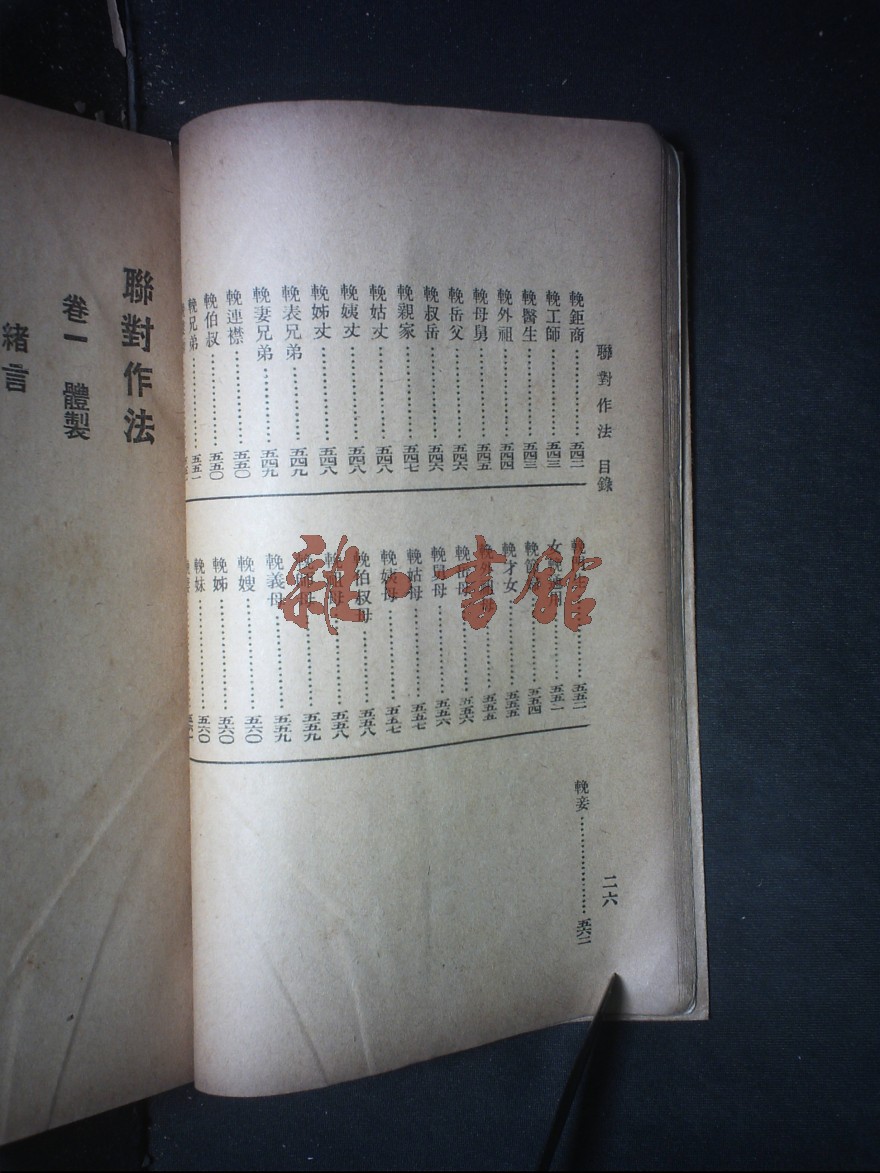 聯對作法 目錄
二六
輓鉅商…………五四二
輓工師…………五四三
輓醫生…………五四三
輓外祖…………五四四
輓母舅…………五四五
輓岳父…………五四六
輓叔岳…………五四六
輓親家…………五四七
輓姑丈…………五四八
輓姨丈…………五四八
輓姊丈…………五四八
輓表兄弟…………五四九
輓妻兄弟…………五四九
輓連襟…………五五〇
輓伯叔…………五五〇
輓兄弟…………五五一
五五二
五五二
五五四
輓才女…………五五五
輓外祖母…………五五五
輓岳母…………五五六
輓舅母…………五五六
輓姑母…………五五七
輓姨母…………五五七
輓伯叔母…………五五八
輓祖母…………五五八
輓師母…………五五九
輓義母…………五五九
輓嫂…………五六〇
輓姊…………五六〇
輓妹…………五六〇
輓妾…………五六二
聯對作法
卷一 體製
緒言
雜·書館